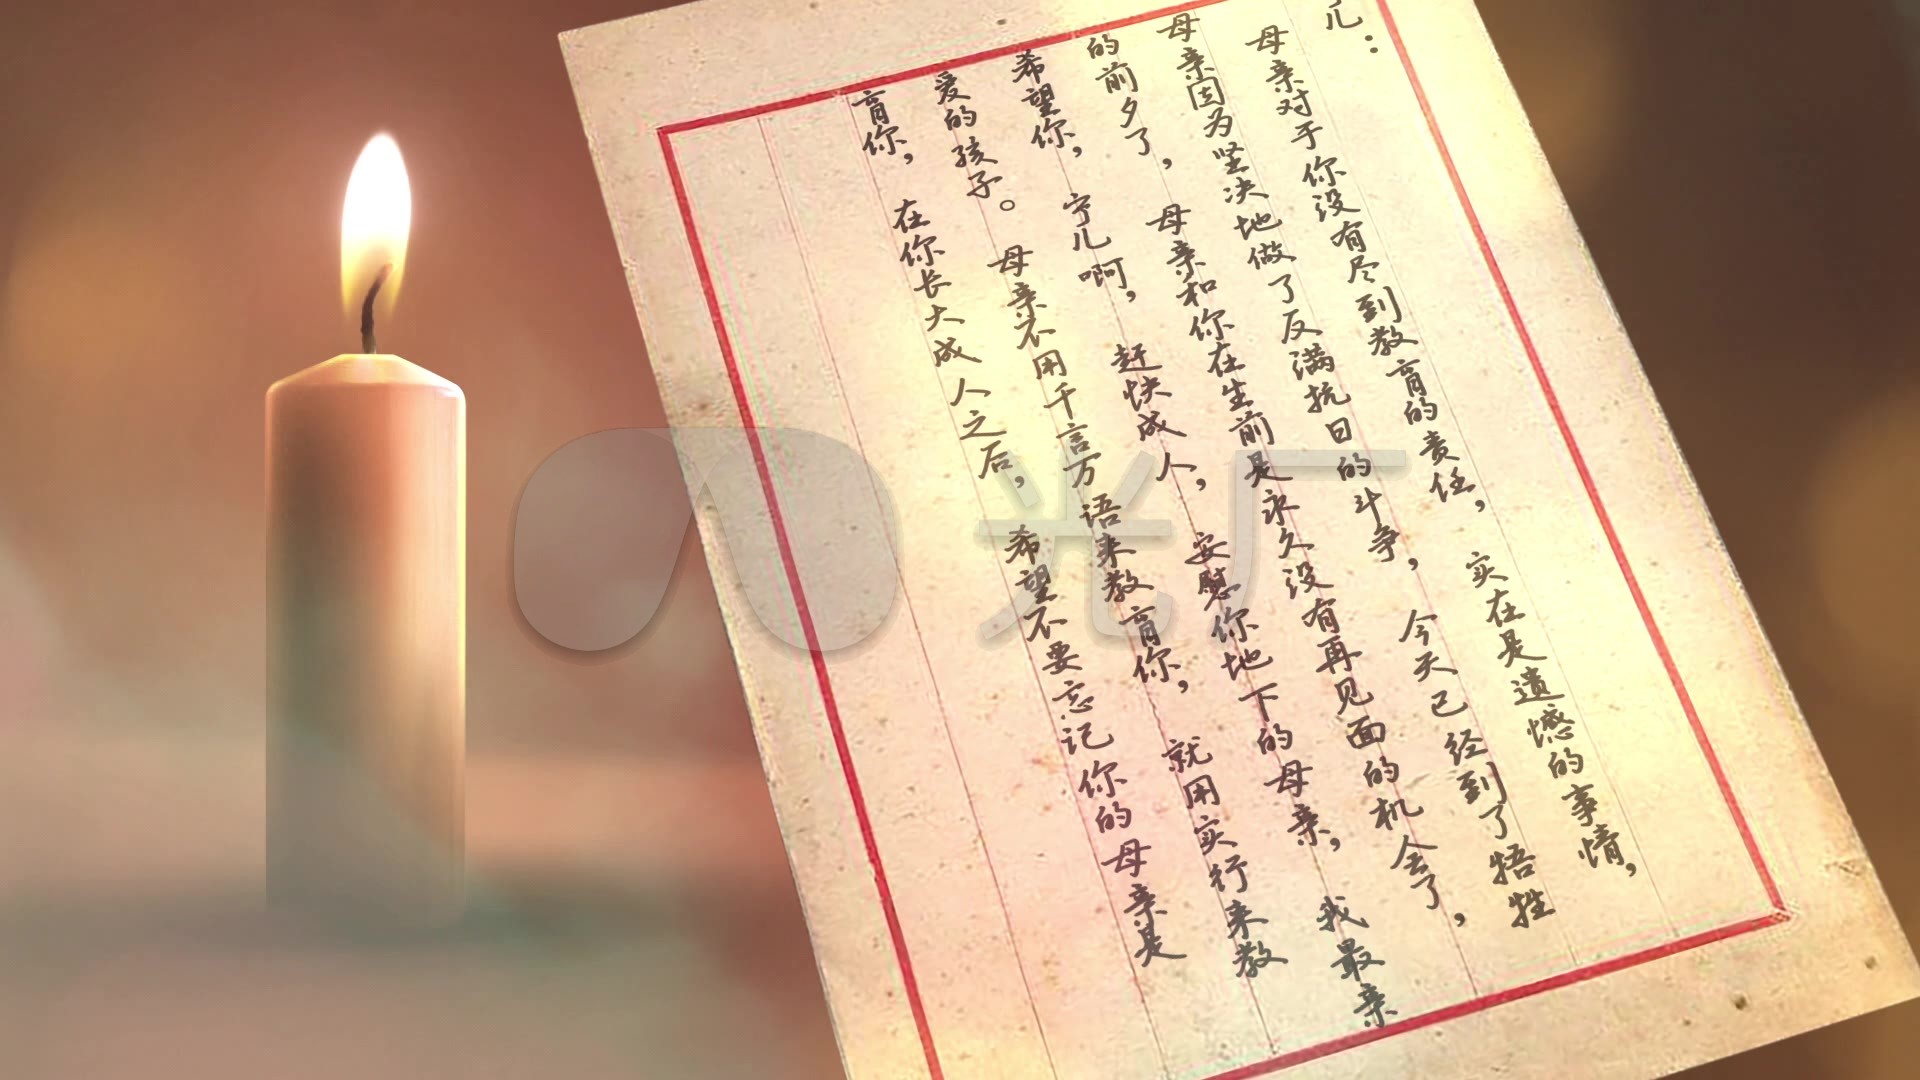 儿：
母亲对于你没有尽到教育的责任，实在是遗憾的事情，
母亲因为坚决地做了反满抗日的斗争，今天已经到了牺牲
的前夕了，母亲和你在生前是永久没有再见面的机会了，
希望你，宁儿啊，赶快成人，安慰你地下的母亲，我最亲
爱的孩子。母亲不用千言万语来教育你，就用实行来教
育你，在你长大成人之后，希望不要忘记你的母亲是
光厂